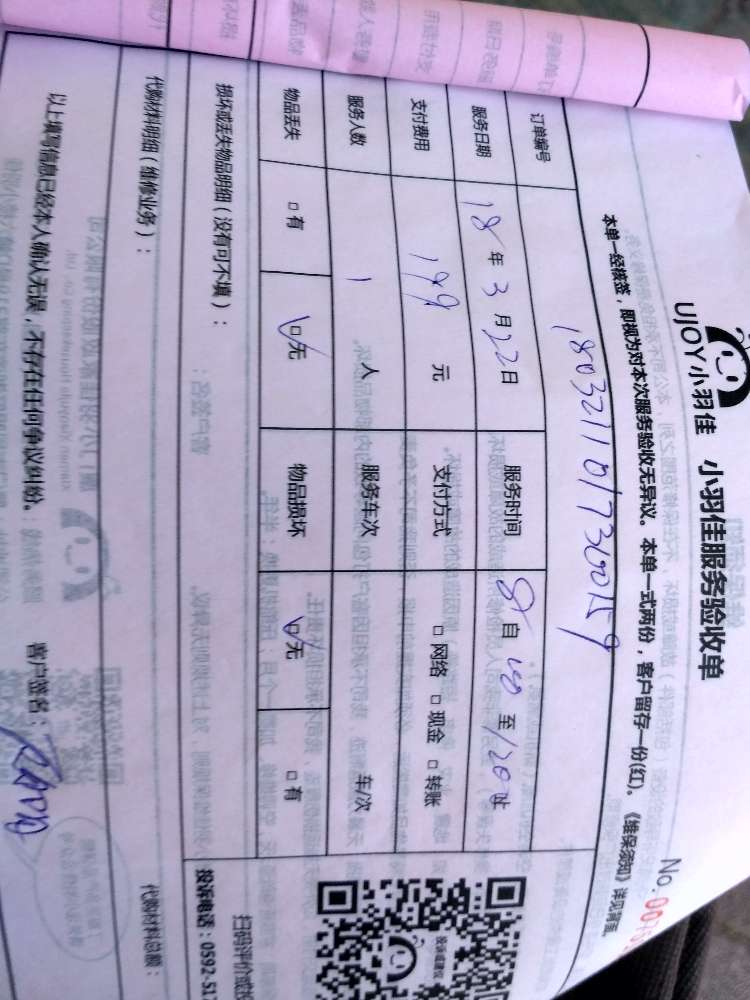 UJOY小羽佳 小羽佳服务验收单
No.
本单一经核签，即视为对本次服务验收无异议。本单一式两份，客户留存一份(红)。《维保须知》详见背面。
订单编号
服务日期 18年3月22日 服务时间 自 至
支付费用 199 元 支付方式 □网络 □现金 □转账
服务人数 1 人 服务车次 车/次
物品丢失 □有 □无 物品损坏 □无 □有
损坏或丢失物品明细（没有可不填）：
扫码评价或投
投诉电话：0592-51
代购材料明细（维修业务）：
代购材料总额：
以上填写信息已经本人确认无误，不存在任何争议纠纷。 客户签名：